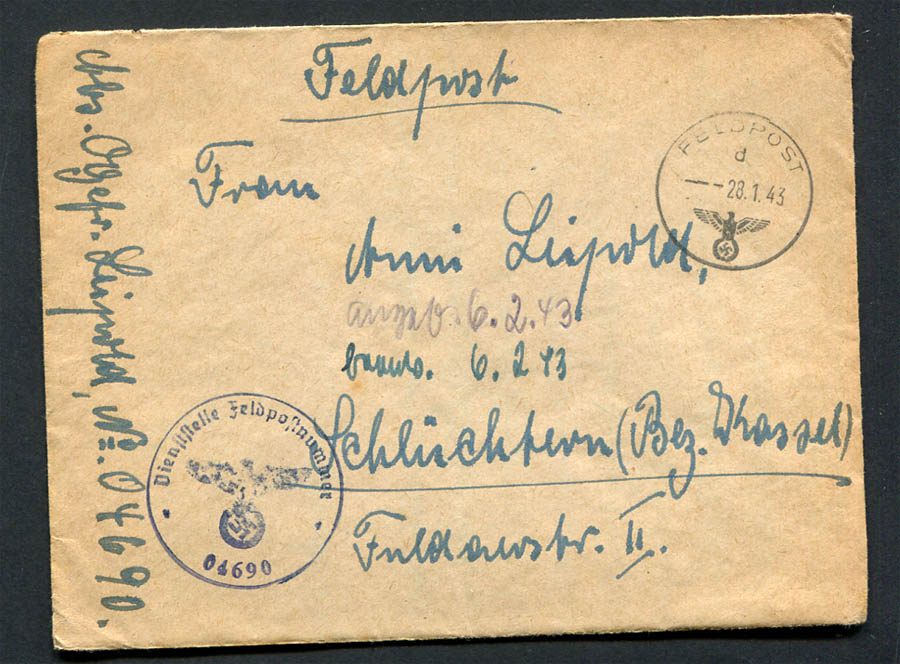 Feldpost
FELDPOST
d
28.1.43
Frau
Anni Liepold,
angek. 6.2.43
beantw. 6.2.43
Schlüchtern (Bez. Kassel)
Fuldaerstr. II.
Dienststelle Feldpostnummer
04690
Abs. Ogefr. Liepold, No. 04690.